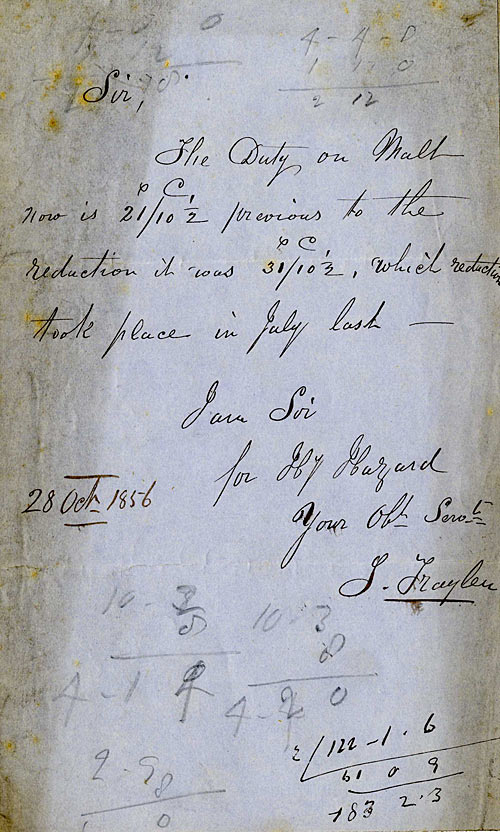 4 - 4 - 0
1 0
2 12
Sir,
The Duty on Malt
now is 21/10½ previous to the
reduction it was 31/10½, which reduction
took place in July last —
I am Sir
for Hy Hazard
28 Oct 1856
Your Obt Servt
10 - 3
8
4 - 1
10 - 3
8
0
2/122 - 1 . 6
61 0 9
183 2.3
0